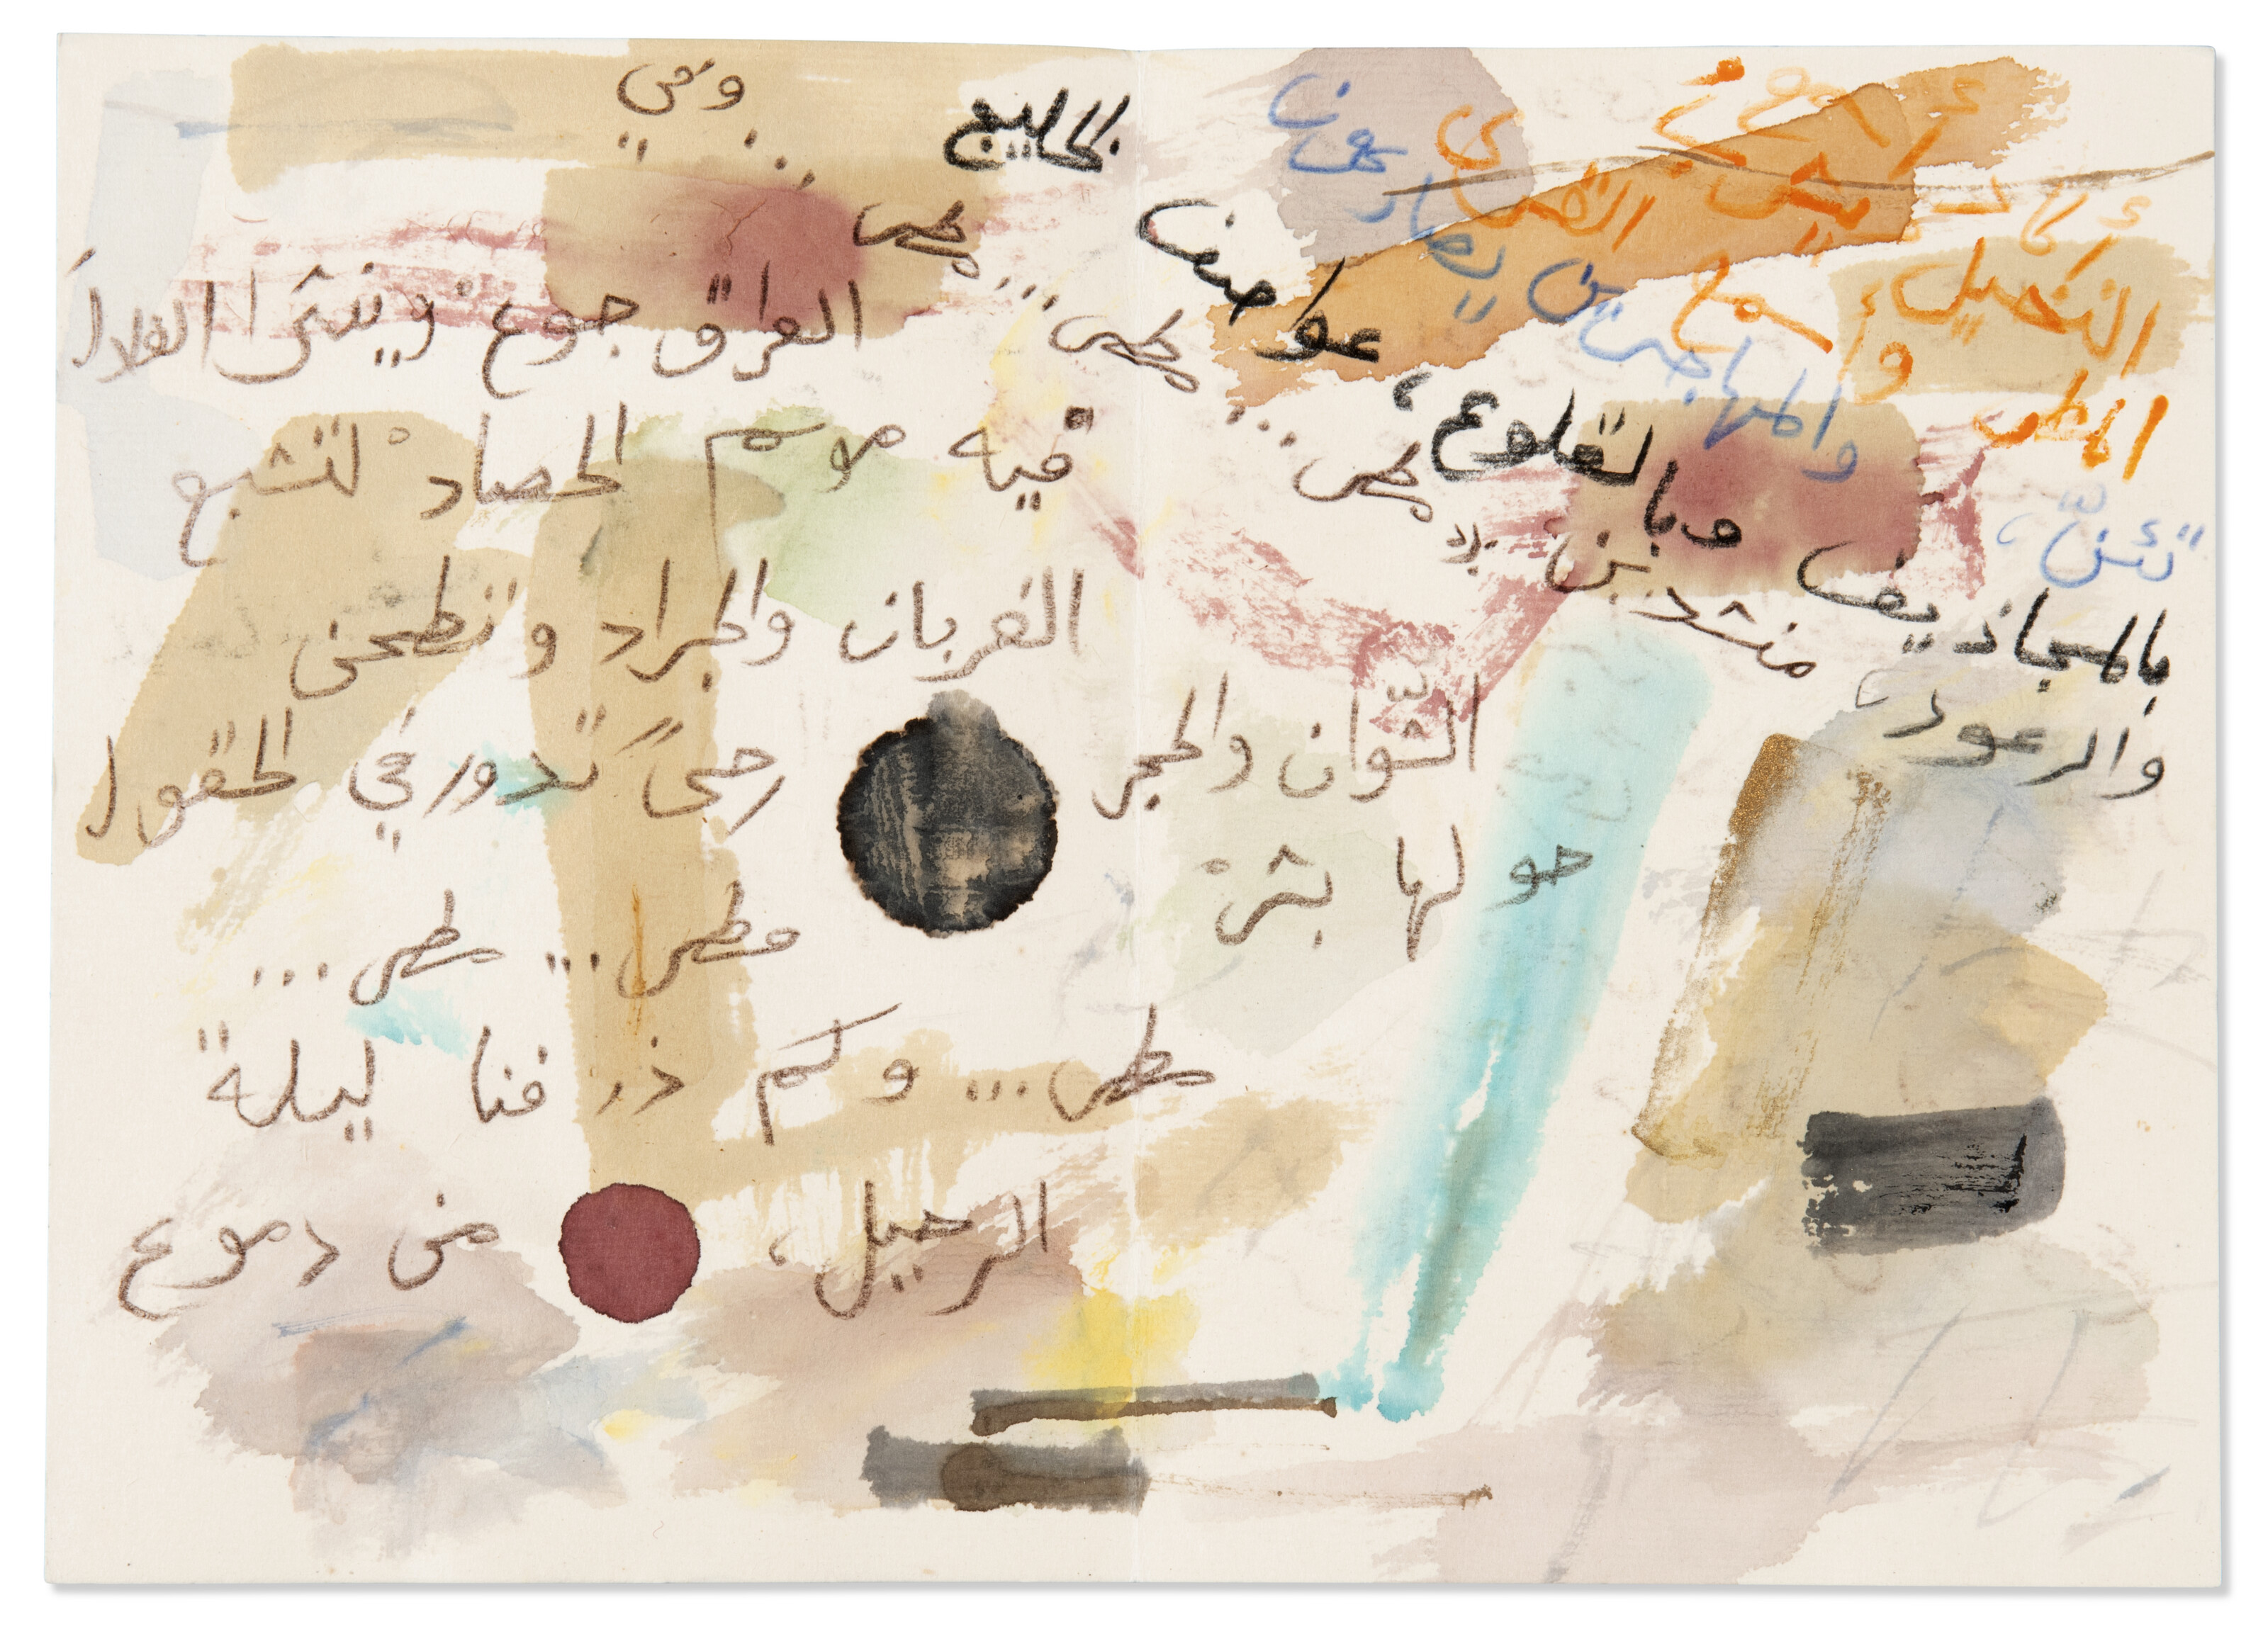 أكاد أسمع
النخيل يشرب
المطر وأسمع القرى
تئنّ، والمهاجرين يصارعون
بالمجاذيف وبالقلوع، عواصف الخليج
والرعود، منشدين: مطر... مطر... مطر... وفي
العراق جوع وينثر الغلالَ
فيه موسم الحصادْ لتشبع
الغربان والجراد وتطحن
الشّوان والحجر
رحىً تدور في الحقول
حولها بشرْ
مطر... مطر...
مطر... وكم ذرفنا ليلة
الرحيل، من دموع